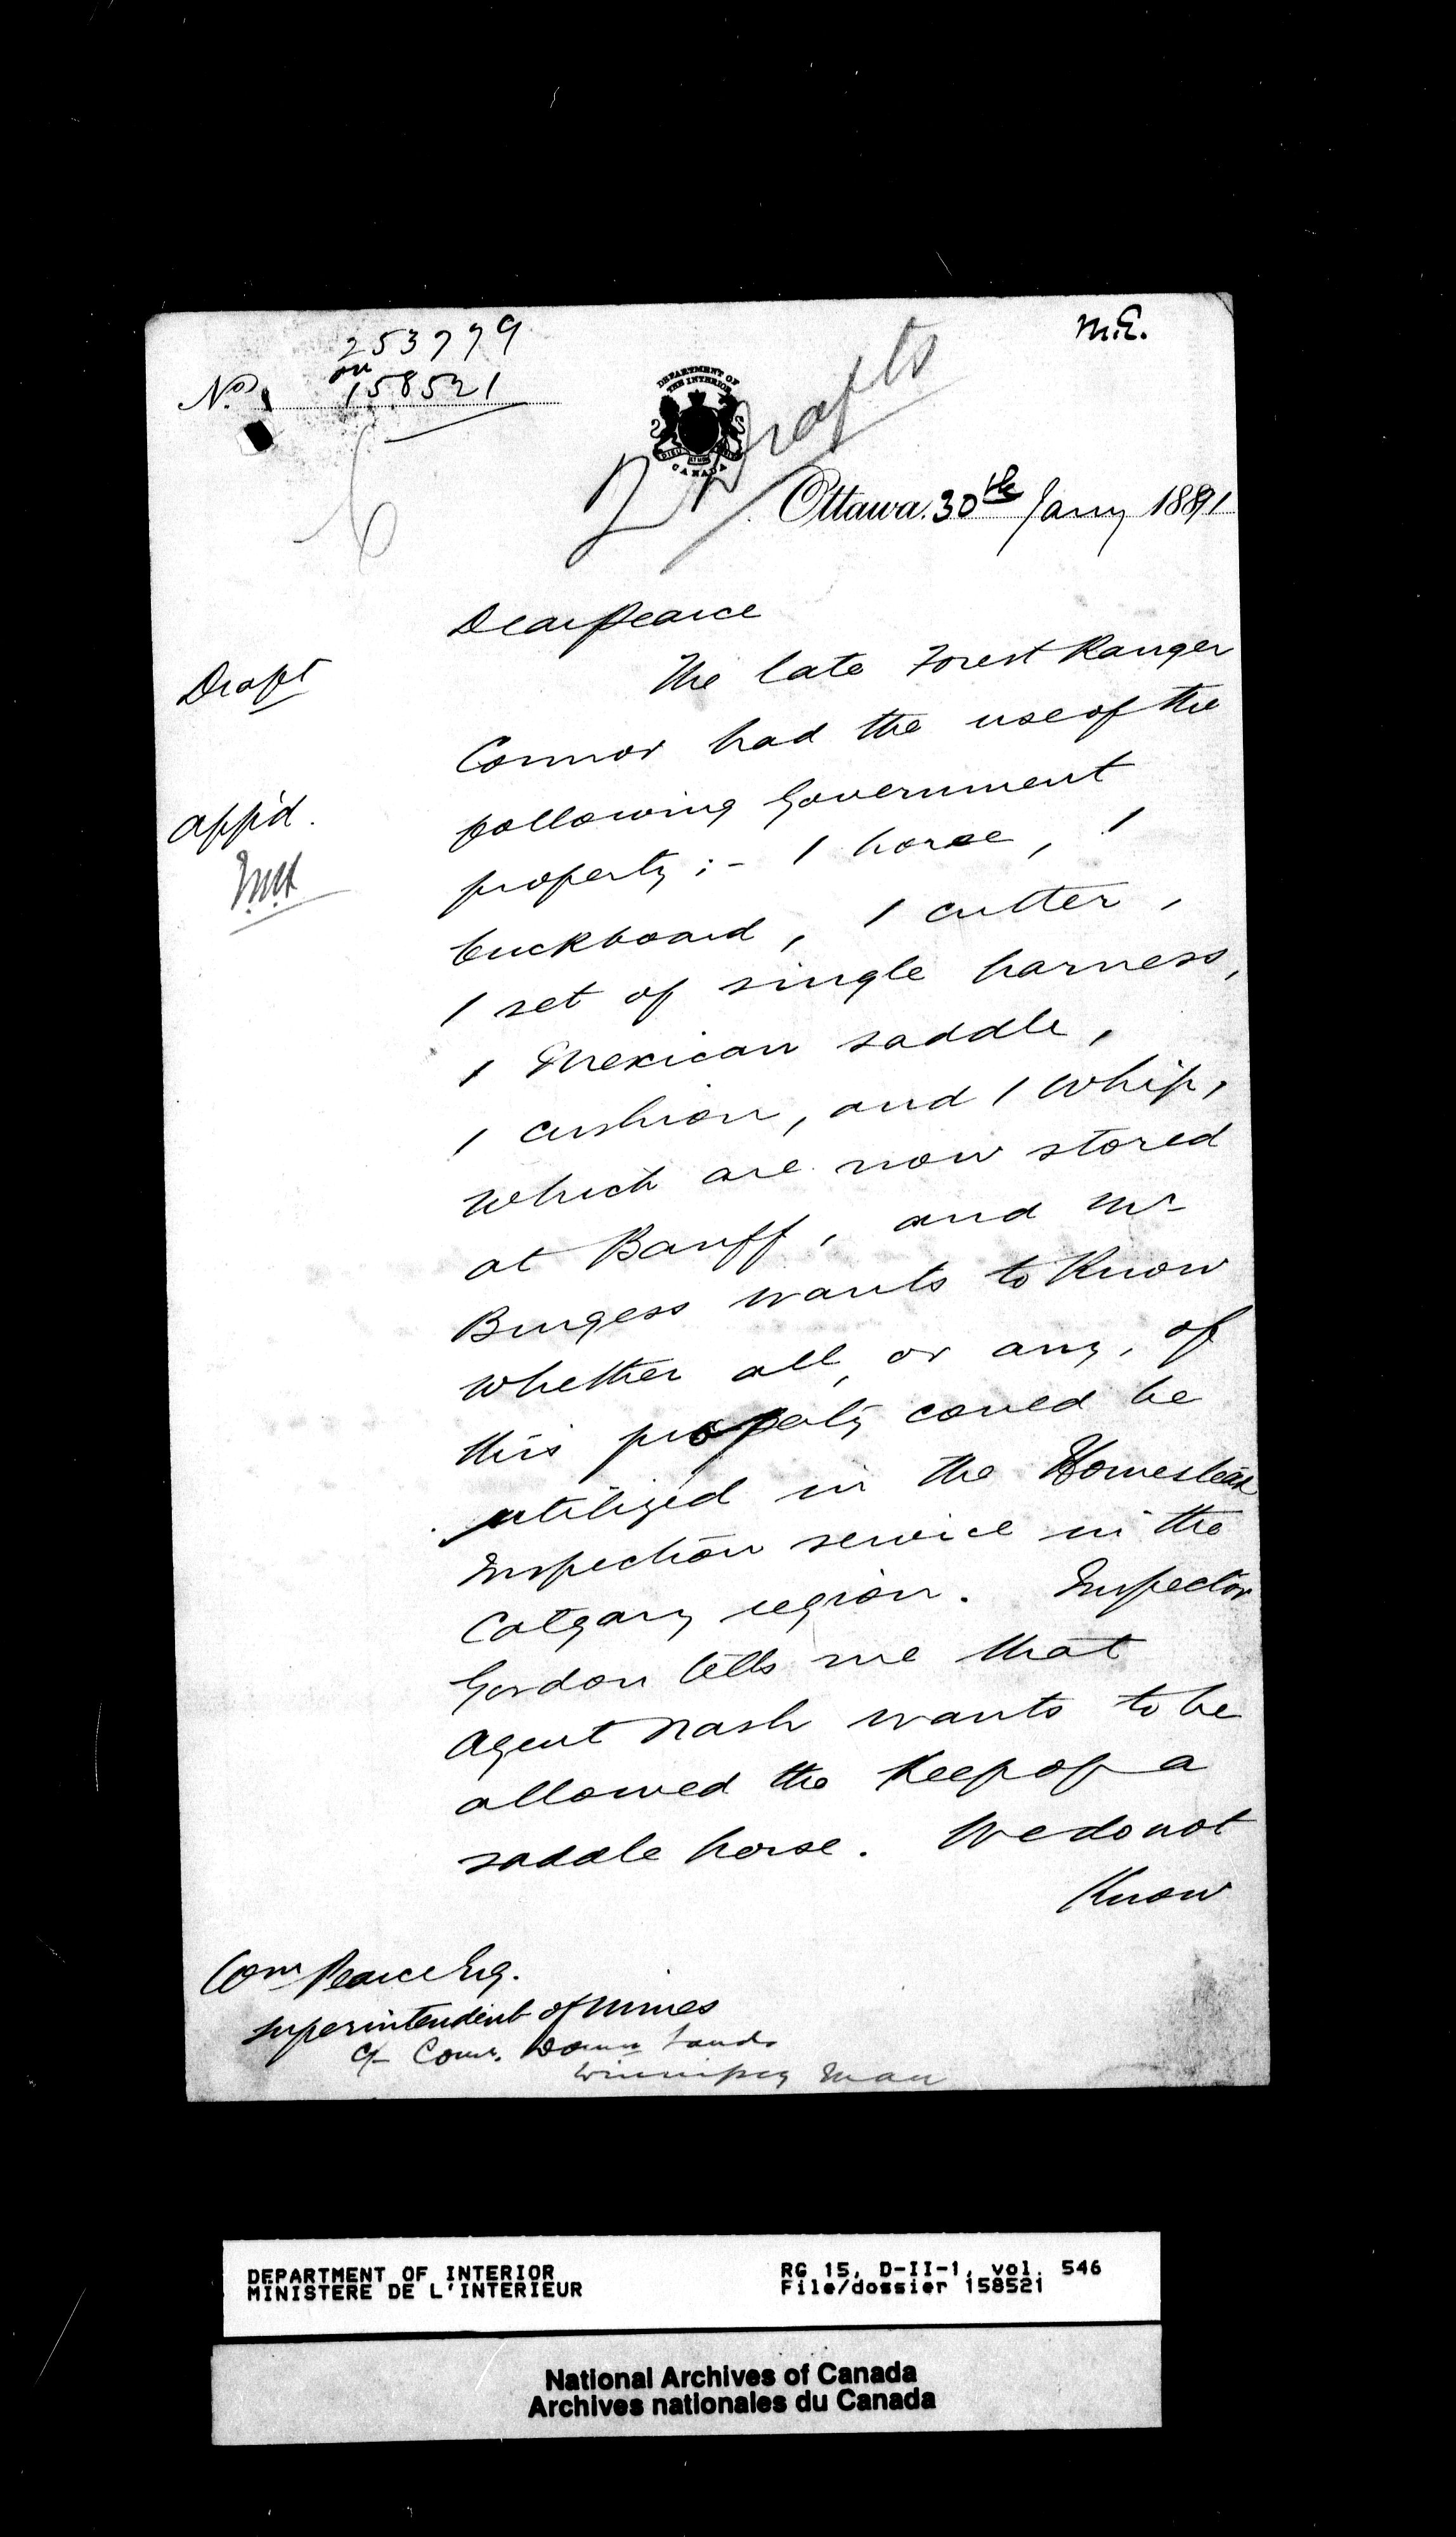 M.E.
253779
on
No. 158521
DEPARTMENT OF
THE INTERIOR
CANADA
2 Drafts
Ottawa. 30th Jany 1891
Dear Pearce
Draft
The late Forest Ranger
Connor had the use of the
following Government
App'd.
property ;- 1 horse, 1
buckboard, 1 cutter,
1 set of single harness,
1 Mexican saddle,
1 cushion, and 1 whip,
which are now stored
at Banff, and Mr
Burgess wants to know
whether all, or any, of
this property could be
utilized in the Homestead
Inspection service in the
Calgary region. Inspector
Gordon tells me that
Agent Nash wants to be
allowed the keep of a
saddle horse. We do not
know
Wm Pearce Esq.
Superintendent of Mines
c/- Comr. Domn Lands
Winnipeg Man
DEPARTMENT OF INTERIOR
MINISTERE DE L'INTERIEUR
RG 15, D-II-1, vol. 546
File/dossier 158521
National Archives of Canada
Archives nationales du Canada